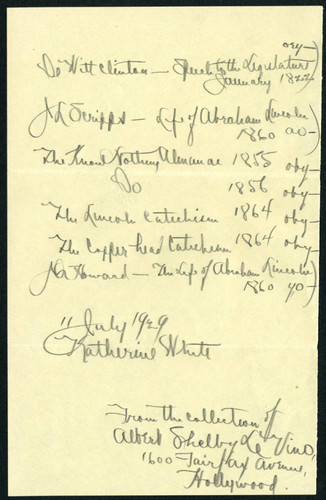 De Witt Clinton — Speech to the Legislature
January 1822
J L Scripps — Life of Abraham Lincoln
1860
The Know Nothing Almanac 1855
Do 1856
The Lincoln Catechism 1864
The Copper head Catechism 1864
J Q Howard — The Life of Abraham Lincoln
1860
11 July 1929
Katherine White
From the collection of
Albert Shelby Le Vino,
1600 Fairfax Avenue,
Hollywood.